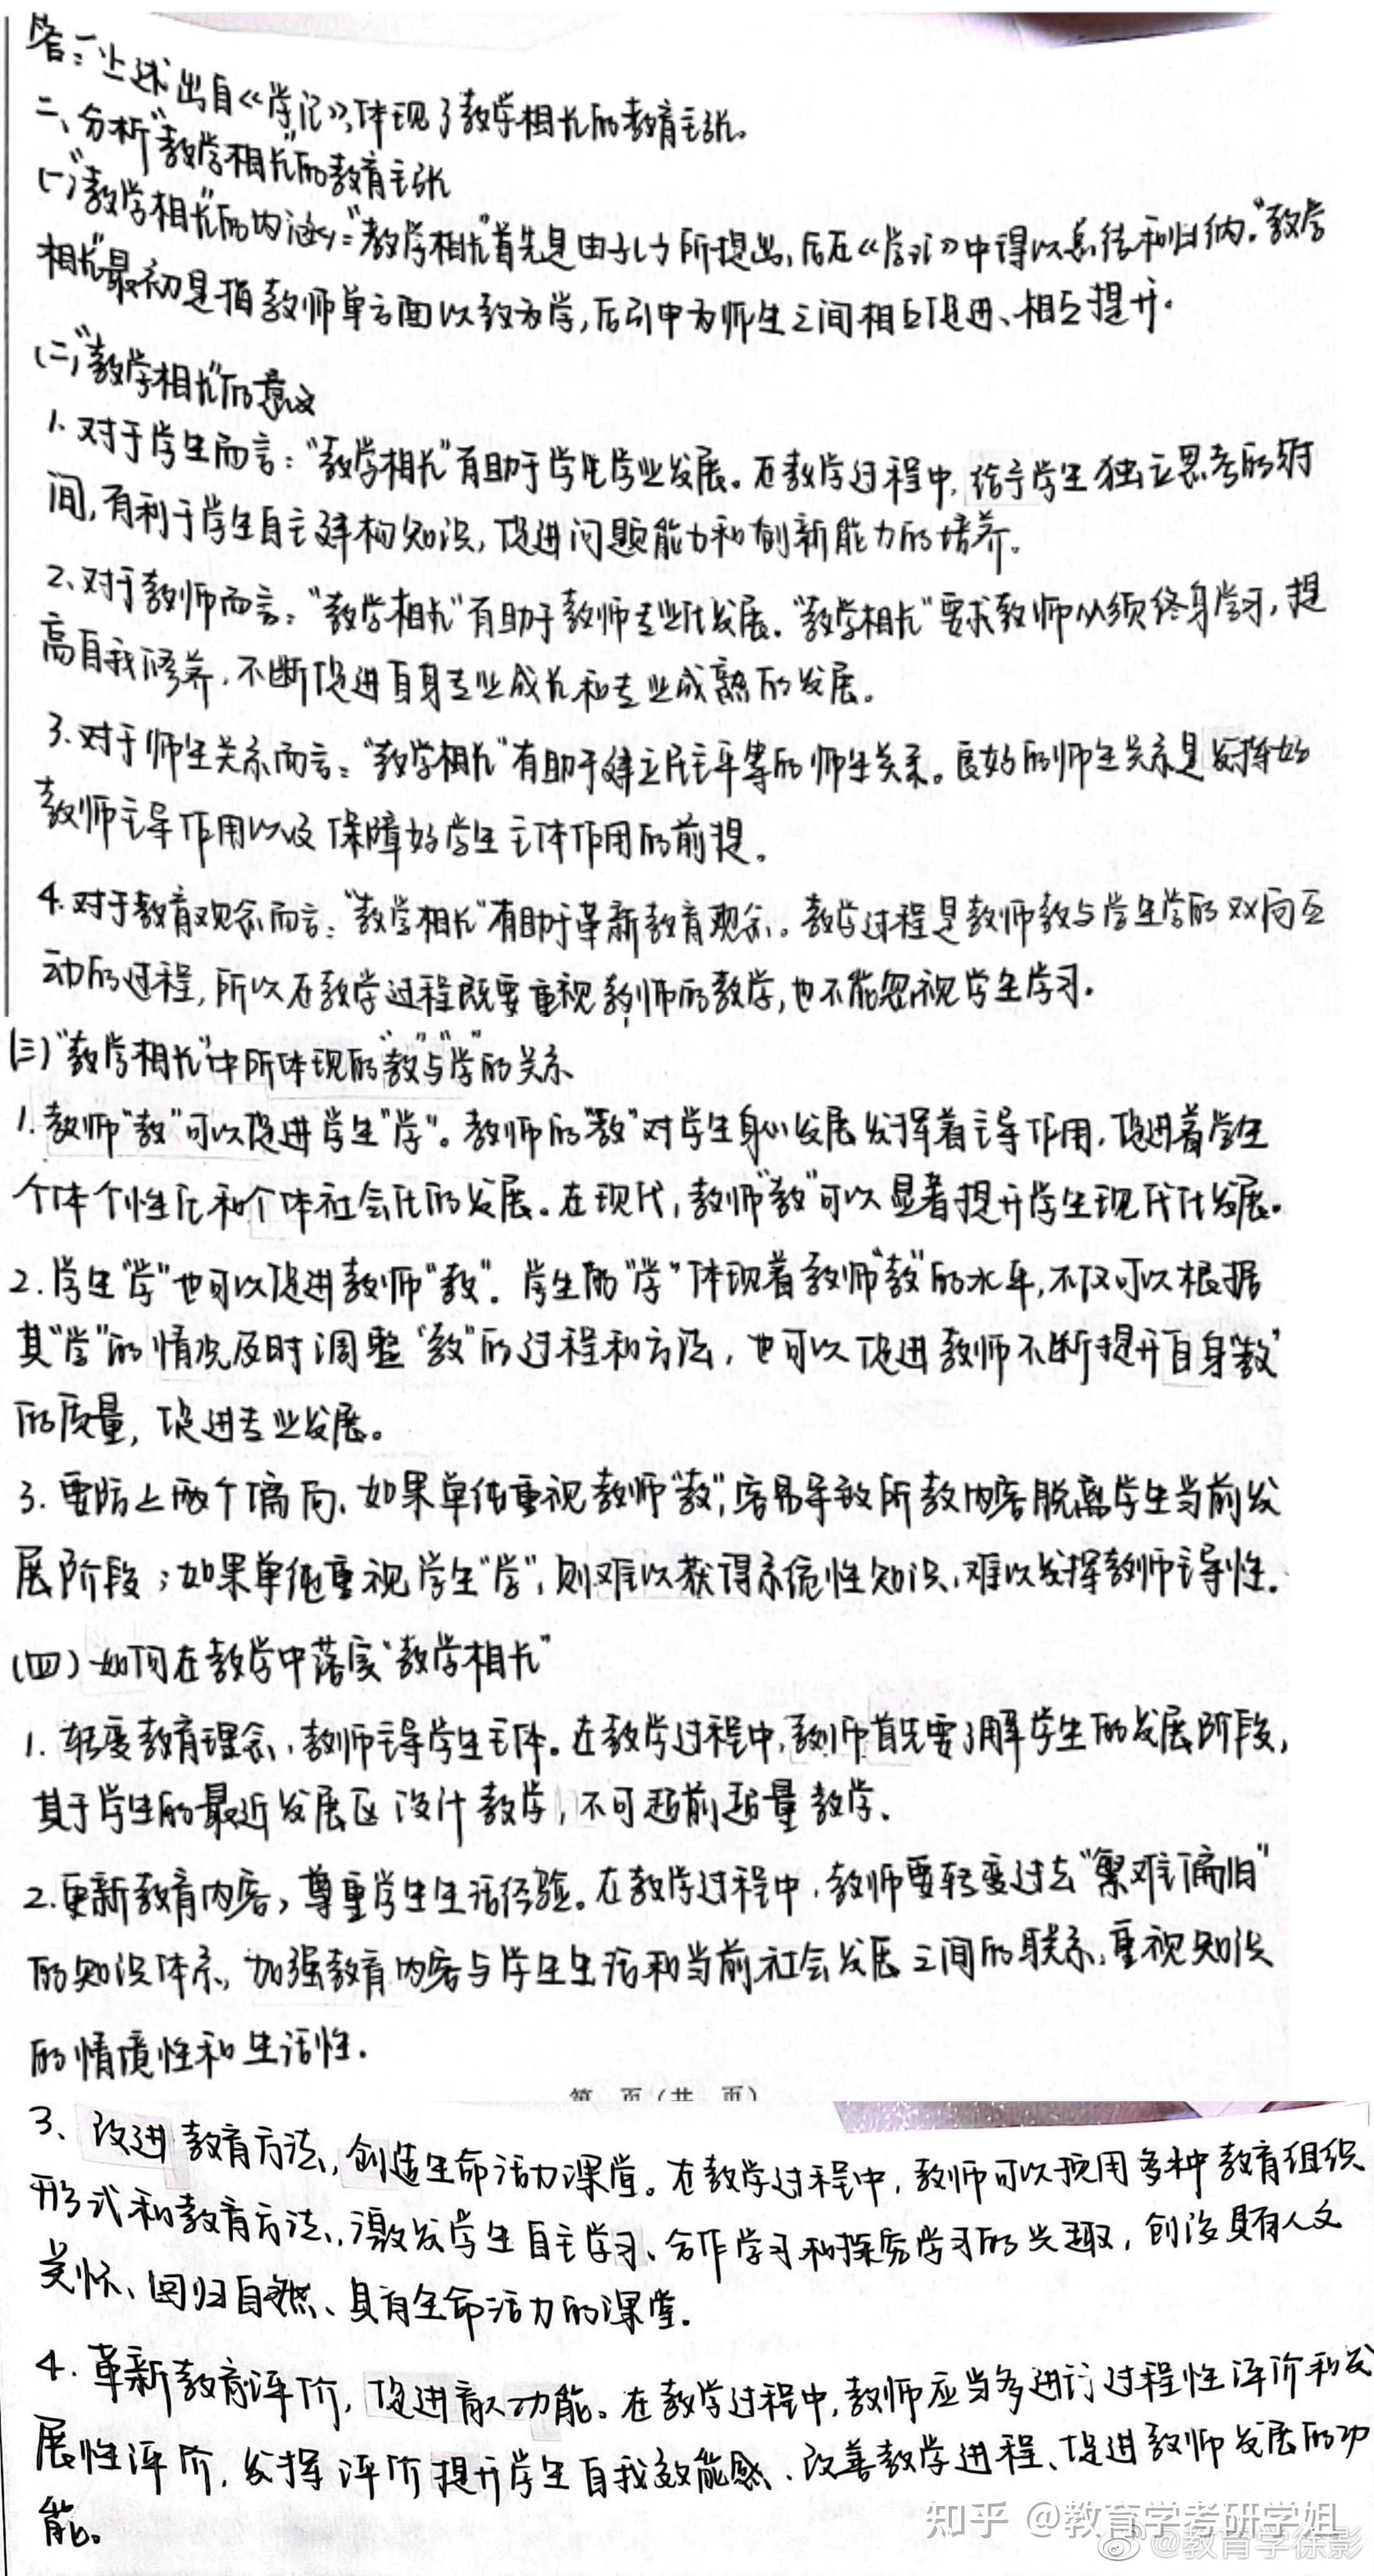 答：一、上述出自《学记》，体现了教学相长的教育主张。
二、分析"教学相长"的教育主张
(一)"教学相长"的内涵："教学相长"首先是由孔子所提出，后在《学记》中得以总结和归纳。"教学
相长"最初是指教师单方面以教为学，后引申为师生之间相互促进、相互提升。
(二)"教学相长"的意义
1. 对于学生而言："教学相长"有助于学生学业发展。在教学过程中，给予学生独立思考的时
间，有利于学生自主建构知识，促进问题能力和创新能力的培养。
2. 对于教师而言："教学相长"有助于教师专业化发展。"教学相长"要求教师必须终身学习，提
高自我修养，不断促进自身专业成长和专业成熟的发展。
3. 对于师生关系而言："教学相长"有助于建立民主平等的师生关系。良好的师生关系是发挥好
教师主导作用以及保障好学生主体作用的前提。
4. 对于教育观念而言："教学相长"有助于革新教育观念。教学过程是教师教与学生学的双向互
动的过程，所以在教学过程既要重视教师的教学，也不能忽视学生学习。
(三)"教学相长"中所体现的"教"与"学"的关系
1. 教师"教"可以促进学生"学"。教师的"教"对学生身心发展发挥着主导作用，促进着学生
个体个性化和个体社会化的发展。在现代，教师"教"可以显著提升学生现代化发展。
2. 学生"学"也可以促进教师"教"。学生的"学"体现着教师"教"的水平，不仅可以根据
其"学"的情况及时调整"教"的过程和方法，也可以促进教师不断提升自身"教"
的质量，促进专业发展。
3. 要防止两个偏向。如果单纯重视教师"教"，容易导致所教内容脱离学生当前发
展阶段；如果单纯重视学生"学"，则难以获得系统性知识，难以发挥教师主导性。
(四) 如何在教学中落实"教学相长"
1. 转变教育理念，教师主导学生主体。在教学过程中，教师首先要了解学生的发展阶段，
其于学生的最近发展区设计教学，不可超前超量教学。
2. 更新教育内容，尊重学生生活经验。在教学过程中，教师要转变过去"繁难偏旧"
的知识体系，加强教育内容与学生生活和当前社会发展之间的联系，重视知识
的情境性和生活性。
第 页（共 页）
3、改进教育方法，创造生命活力课堂。在教学过程中，教师可以采用多种教育组织
形式和教育方法，激发学生自主学习、合作学习和探究学习的兴趣，创设具有人文
关怀、回归自然、具有生命活力的课堂。
4. 革新教育评价，促进育人功能。在教学过程中，教师应当多进行过程性评价和发
展性评价，发挥评价提升学生自我效能感、改善教学进程、促进教师发展的功
能。
知乎 @教育学考研学姐
@教育学徐影